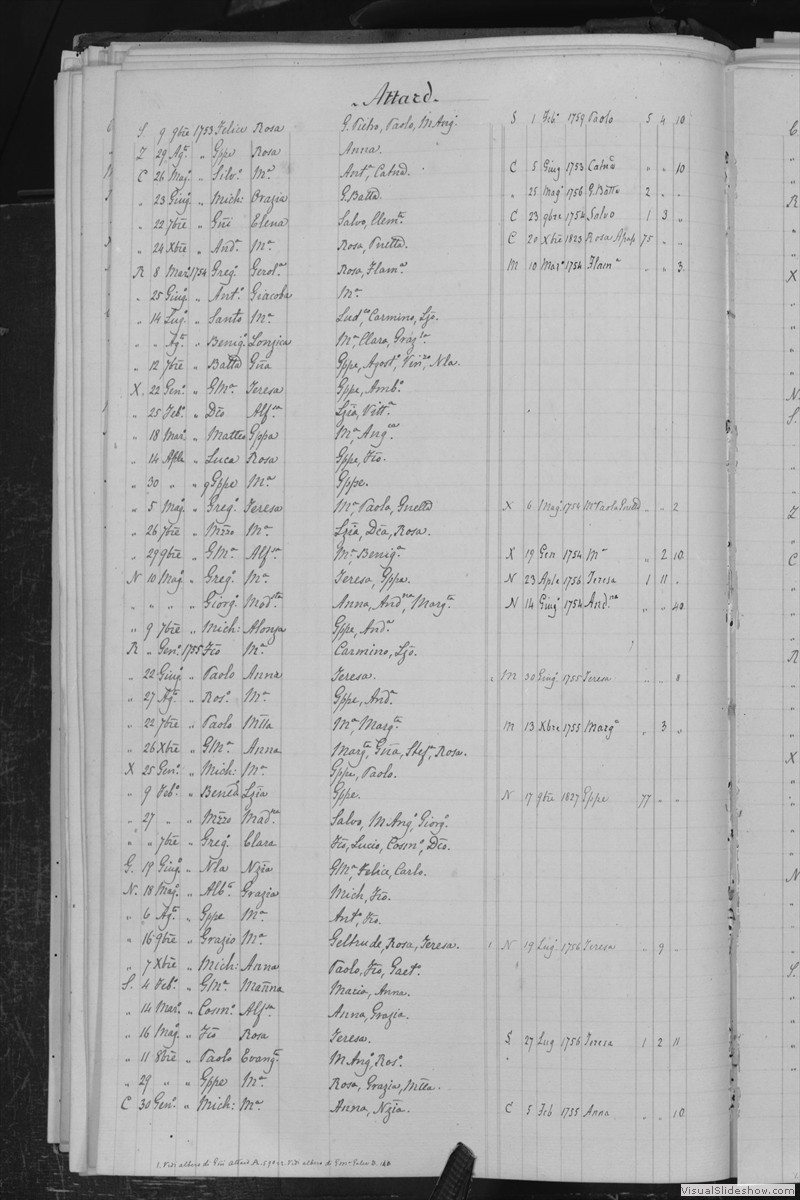 Attard.
S 9 9bre 1753 Felice Rosa G. Pietro, Paolo, M Ang.ª S 1 Feb.º 1759 Paolo 5 4 10
Z 29 Ag.º „ Gppe Rosa Anna.
C 26 Mag.º „ Silv.º M.ª Ant.ª Catnā. C 5 Giug 1753 Catnā „ „ 10
„ 23 Giug.º „ Mich: Orazia G. Batta. „ 25 Mag.º 1756 G. Batta 2 „ „
„ 22 7bre „ Gñi Elena Salvo, Clem.ª C 23 9bre 1754 Salvo 1 3 „
„ 24 Xbre „ And.ª M.ª Rosa, Pnetta. C 20 Xbre 1823 Rosa Apap 75 „ „
R 8 Mar.º 1754 Greg.º Gerol.ª Rosa, Flam.ª M 10 Mar.º 1754 Flam.ª „ „ 3
„ 25 Giug.º „ Ant.º Giacoba M.ª
„ 14 Lug.º „ Santo M.ª Lud.ca, Carmino, Lzo.
„ „ Ag.º „ Benig.º Lonzica M.ª, Clara, Graz.ia
„ 12 7bre „ Batta Gña Gppe, Agost.º, Vin.zo, Nla.
X. 22 Gen.º „ GM.ª Teresa Gppe, Amb.º
„ 25 Feb.º „ Dco Alf.sa Lzia, Vitt.ª
„ 18 Mar.º „ Matteo Gppa M.ª, Ang.ca
„ 14 Aple „ Luca Rosa Gppe, Fco.
„ 30 „ „ Gppe M.ª Gppe.
„ 5 Mag.º „ Greg.º Teresa M.ª, Paola, Gnetta X 6 Mag.º 1754 M.ª Paola Gnetta „ „ 2
„ 26 7bre „ Mzzo M.ª Lzia, Dca, Rosa.
„ 29 9bre „ GM.ª Alf.sa M.ª, Benig.ª X 19 Gen 1754 M.ª „ 2 10
N 10 Mag.º „ Greg.º M.ª Teresa, Gppa. N 23 Aple 1756 Teresa 1 11 „
„ „ „ „ Giorg.º Mod.sta Anna, And.na, Marg.ta N 14 Giug.º 1754 And.na „ „ 40
„ 9 7bre „ Mich: Alonza Gppe, And.ª
R „ Gen.º 1755 Fco M.ª Carmino, Lzo.
„ 22 Giug.º „ Paolo Anna Teresa. M 30 Giug.º 1755 Teresa „ „ 8
„ 27 Ag.º „ Ros.º M.ª Gppe, And.ª
„ 22 7bre „ Paolo Mtta M.ª, Marg.ta M 13 Xbre 1755 Marg.ta „ 3 „
„ 26 Xbre „ GM.ª Anna Marg.ta, Gña, Stef.ª, Rosa.
X 25 Gen.º „ Mich: M.ª Gppe, Paolo.
„ 9 Feb.º „ Bened.º Lzia Gppe. N 17 9bre 1827 Gppe 77 „ „
„ 27 „ „ Mzzo Mad.na Salvo, M. Ang.º, Giorg.º
„ „ 7bre „ Greg.º Clara Fco, Lucio, Cosm.º, Dco.
G. 19 Giug.º „ Nla Nzia GM.ª, Felice, Carlo.
N. 18 Mag.º „ Alb.to Grazia Mich, Fco.
„ 6 Ag.º „ Gppe M.ª Ant.º, Fco.
„ 16 9bre „ Grazio M.ª Geltrude, Rosa, Teresa. 1 N 19 Lug. 1756 Teresa „ 9 „
„ 7 Xbre „ Mich: Anna Paolo, Fco, Gaet.º
S. 4 Feb.º „ GM.ª Manna Maria, Anna.
„ 14 Mar.º „ Cosm.º Alf.sa Anna, Grazia.
„ 16 Mag.º „ Fco Rosa Teresa. S 27 Lug 1756 Teresa 1 2 11
„ 11 8bre „ Paolo Evang.ta M Ang.º, Ros.º
„ 29 „ „ Gppe M.ª Rosa, Grazia, Mtta.
C 30 Gen.º „ Mich: M.ª Anna, Nzia. C 5 Feb 1755 Anna „ „ 10
VisualSlideshow.com